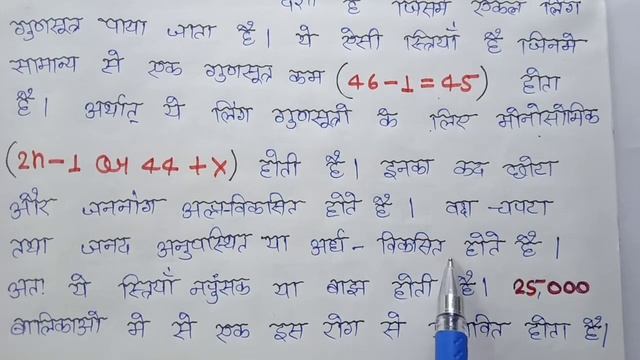 दशा है जिसमे एकल लिंग
गुणसूत्र पाया जाता है। ये ऐसी स्त्रियाँ है जिनमे
सामान्य से एक गुणसूत्र कम (46-1=45) होता
है। अर्थात् ये लिंग गुणसूत्रो के लिए मोनोसोमिक
(2n-1 या 44+X) होती है। इनका कद छोटा
और जननांग अल्प-विकसित होते है। वक्ष -चपटा
तथा जनद अनुपस्थित या अर्ध-विकसित होते है।
अतः ये स्त्रियाँ नपुंसक या बाझ होती है। 25,000
बालिकाओ मे से एक इस रोग से होता है।